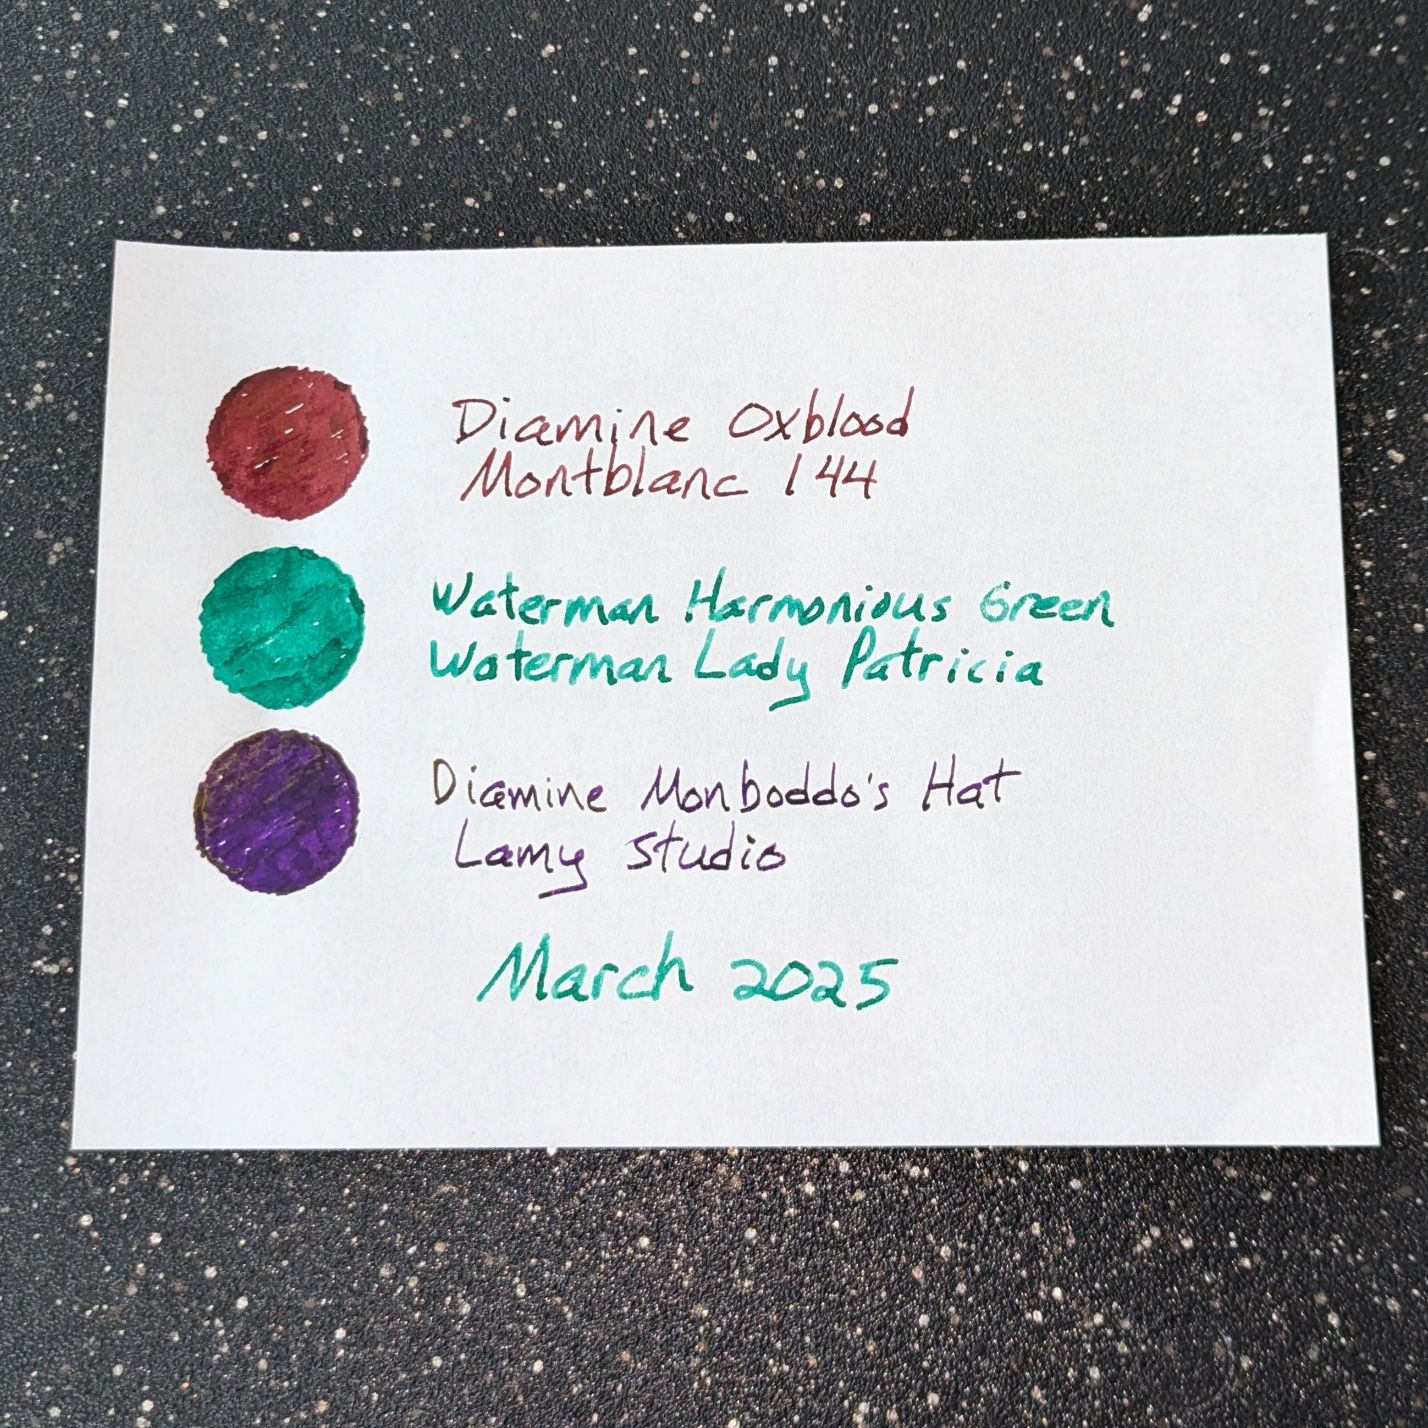 Diamine Oxblood
Montblanc 144
Waterman Harmonious Green
Waterman Lady Patricia
Diamine Monboddo's Hat
Lamy Studio
March 2025